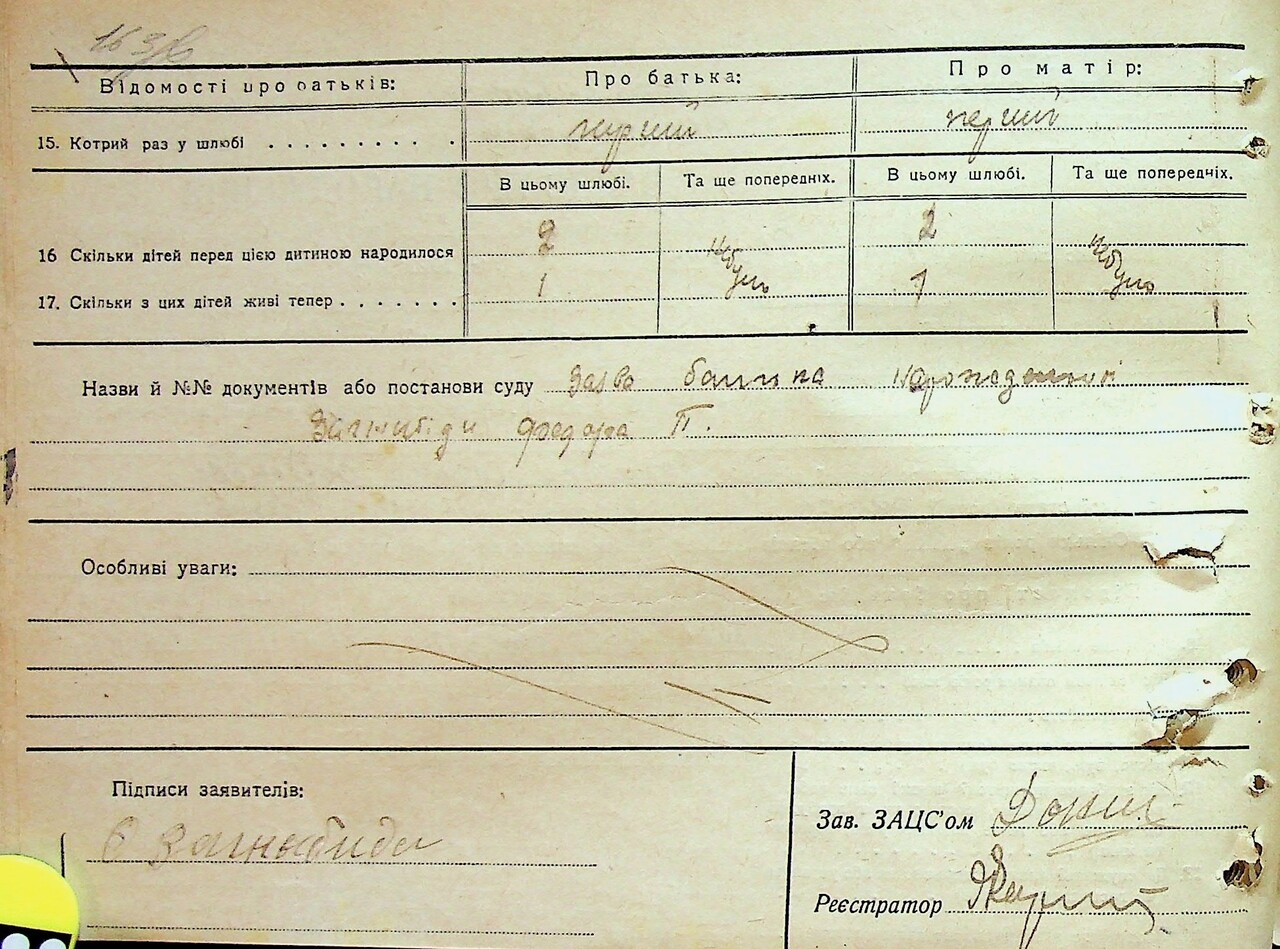 16 зв
Відомості про батьків: Про батька: Про матір:
15. Котрий раз у шлюбі . . . . . . . . . . перший перший
В цьому шлюбі. Та ще попередніх. В цьому шлюбі. Та ще попередніх.
16 Скільки дітей перед цією дитиною народилося 2 небуло 2 небуло
17. Скільки з цих дітей живі тепер . . . . . . . 1 1
Назви й №№ документів або постанови суду заява батька
Загнибіди Федора П.
Особливі уваги:
Підписи заявителів:
Загнибида
Зав. ЗАЦС'ом
Реєстратор